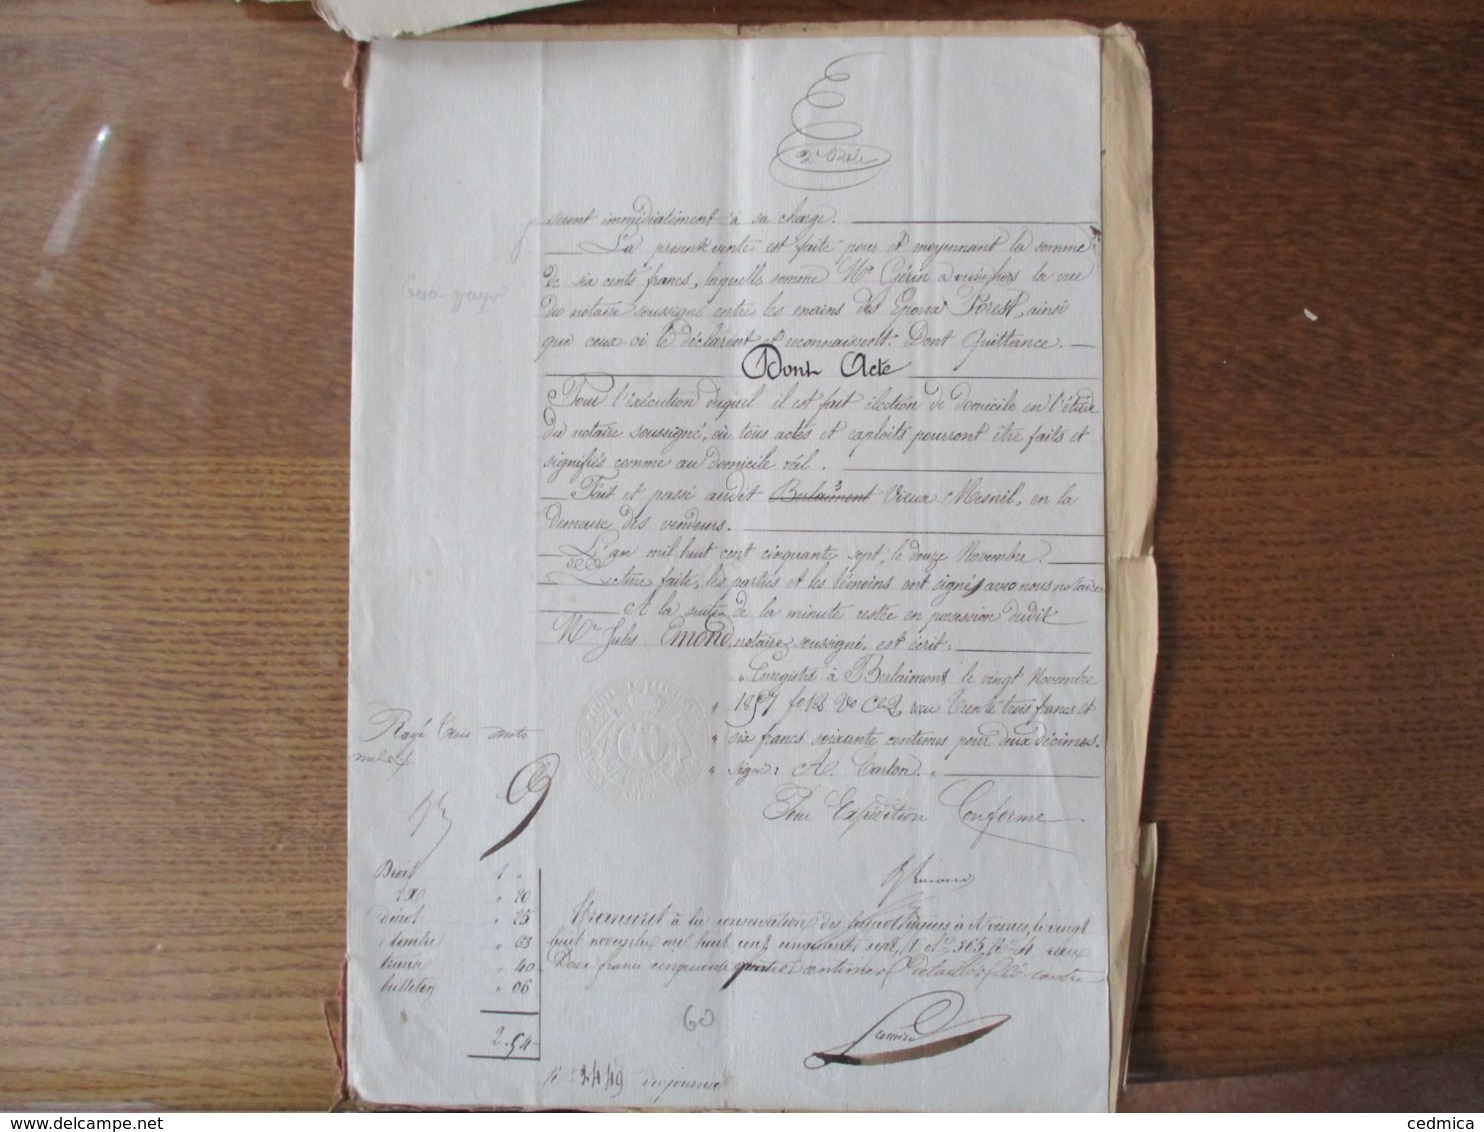 2e Role
seront immédiatement à sa charge.
La présente vente est faite pour et moyennant la somme
de six cents francs, laquelle somme Mr Gérin a versée hors la vue
du notaire soussigné entre les mains des Epoux Forest, ainsi
que ceux-ci le déclarent et reconnaissent. Dont Quittance.
Dont Acte
Pour l'éxécution duquel il est fait élection de domicile en l'étude
du notaire soussigné, où tous actes et exploits pourront être faits et
signifiés comme au domicile réel.
Fait et passé audit Berlaimont Vieux Mesnil, en la
demeure des vendeurs.
L'an mil huit cent cinquante sept, le douze Novembre.
Lecture faite, les parties et les témoins ont signé avec nous notaire
A la suite de la minute restée en possession dudit
Me Jules Emond, notaire soussigné, est écrit:
"Enregistré à Berlaimont le vingt Novembre
" 1857 fo 12 Vo Ce 2, reçu Trente trois francs et
" six francs soixante centimes pour deux décimes.
" signé: A. Carlon. "
Rayé trois mots
nuls
Pour Expédition Conforme
Droit 1 "
" 20
dépot " 25
timbre " 63
trans " 40
bulletin " 06
2.54
Transcrit à la conservation des hypothèques à Avesnes, le vingt
huit novembre mil huit cent cinquante sept, reçu
Deux francs cinquante quatre centimes détaillés ci contre
60
du journal
www.delcampe.net
cedmica